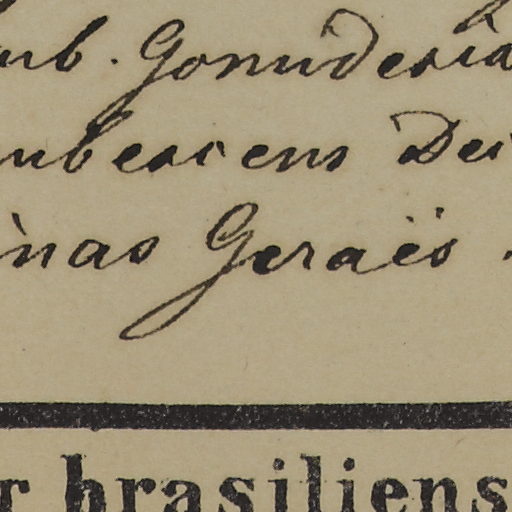 ub. Gomidesia
ubescens Dei
inas Geraës.
r brasiliens